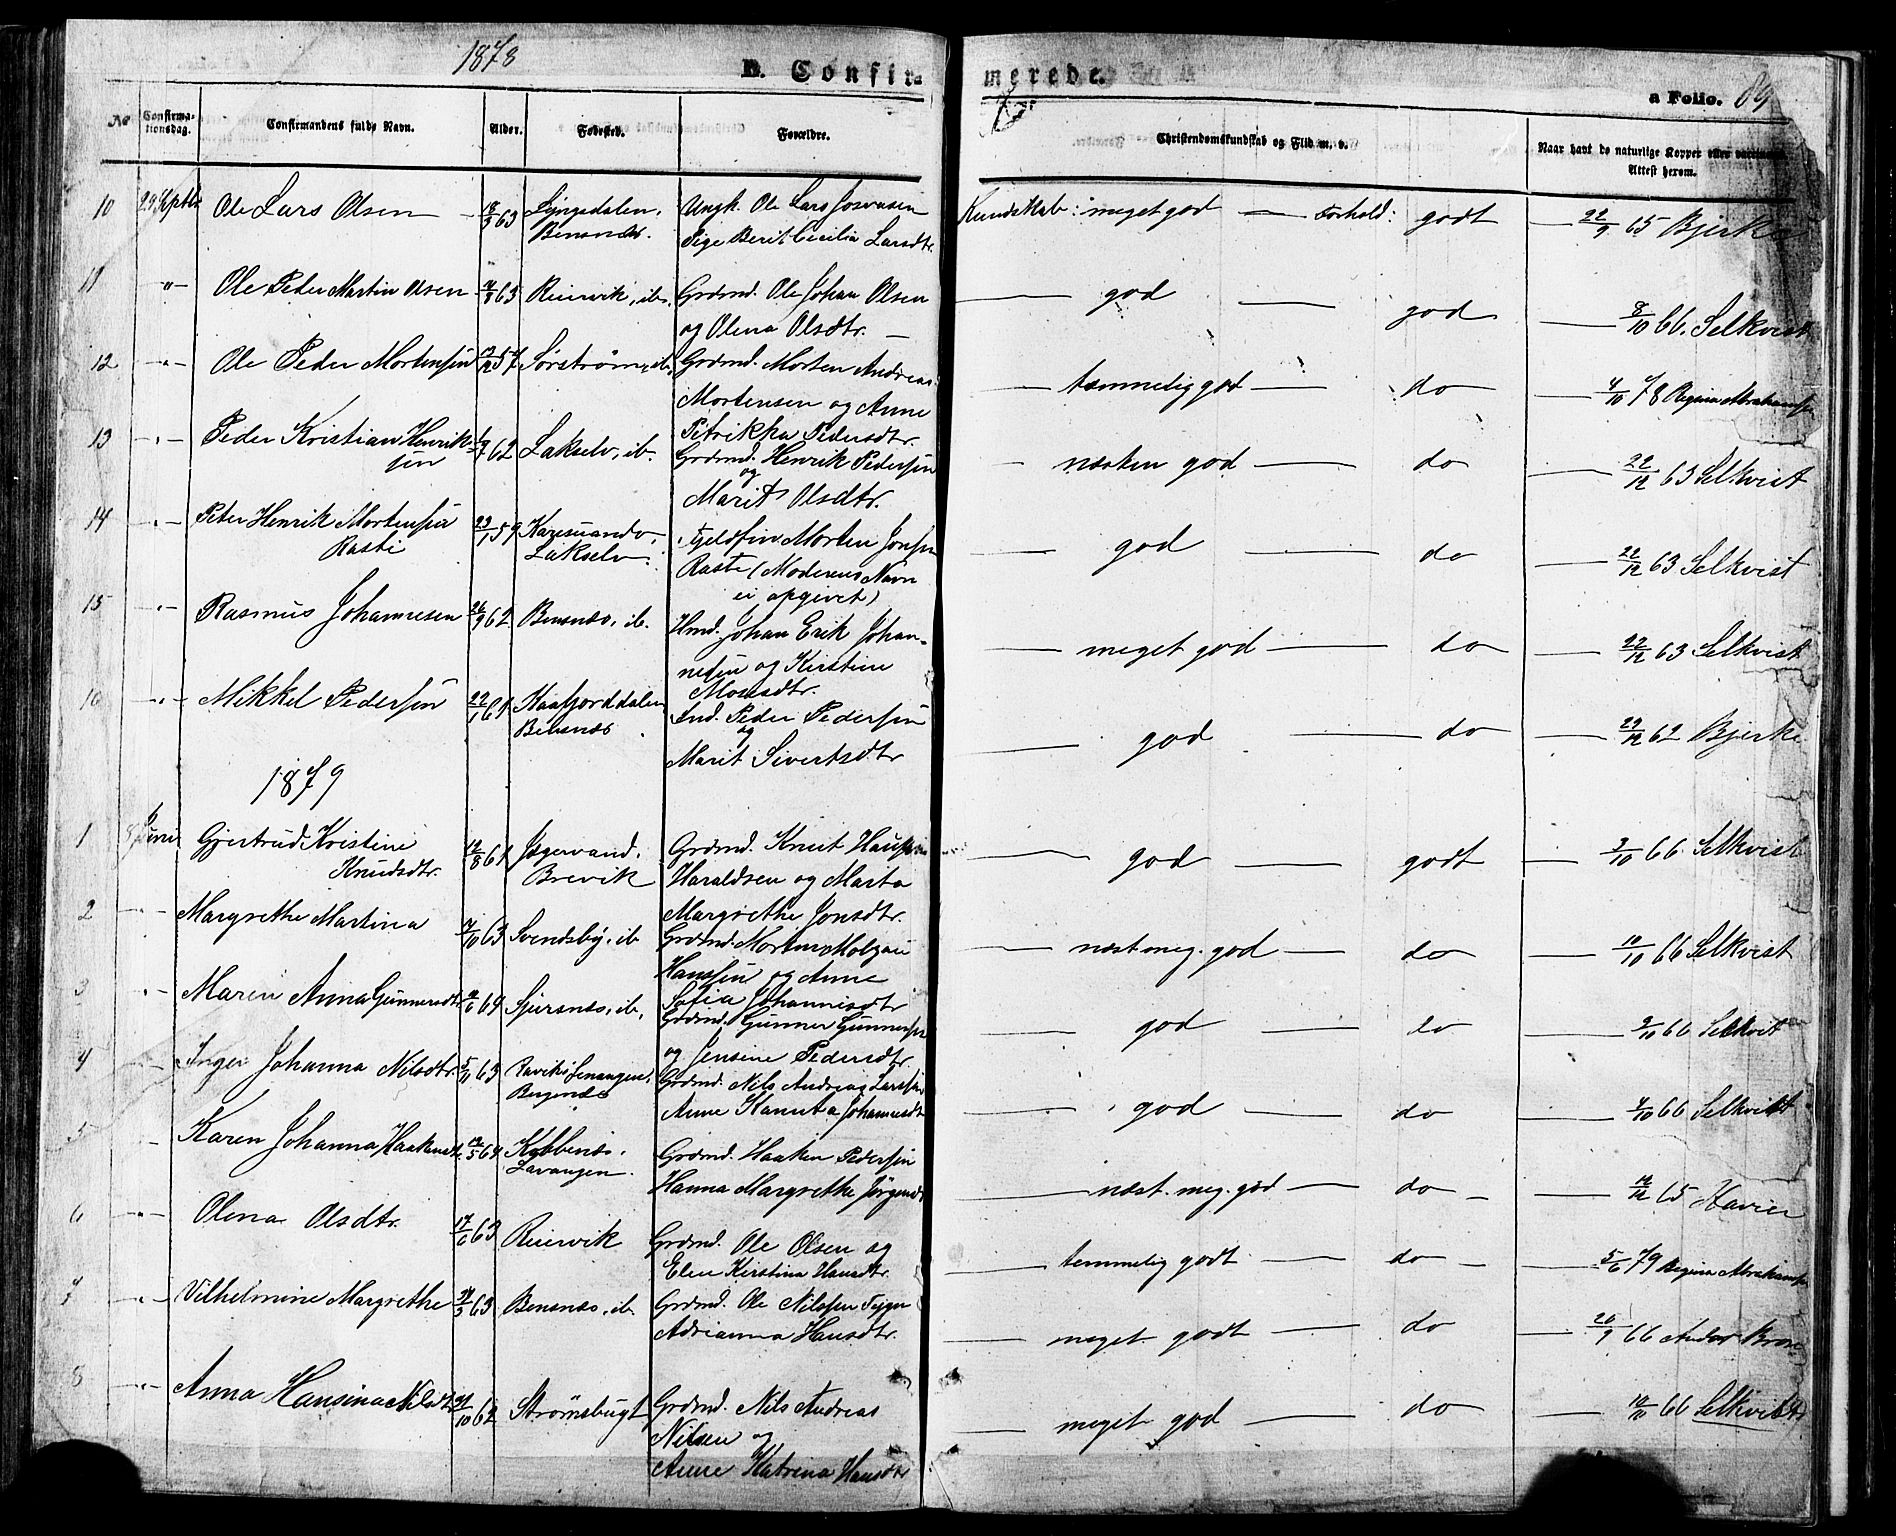 1878
B. Confirmerede.
a Folio. 89
No
Confirmationsdag.
Confirmandens fulde Navn.
Alder.
Fødested.
Forældre.
Christendomskundskab og Flid m. v.
Naar havt de naturlige Kopper eller vaccineret.
Attest herom.
10 29 Septbr Ole Lars Olsen 63 Lyngsdalen, Bensnes. Ungk. Ole Lars Josvasen
Pige Berit Cecilia Larsdtr. Kundskab: meget god — Forhold: godt — 22/9 65 Bjerke
11 -"- Ole Peder Martin Olsen 63 Reiervik, ib. Grdmd. Ole Johan Olsen
og Olena Olsdtr. — god — god — 8/10 66. Selkvist
12 -"- Ole Peder Mortensen 57 Sørstrøm, ib. Grdmd. Morten Andreas
Mortensen og Anne
Petrikka Pedersdtr. — temmelig god — do — 4/10 78 Regina Abrahamsen
13 -"- Peder Kristian Henriksen 62 Lakselv, ib. Grdmd. Henrik Pedersen
og
Marit Olsdtr. — næsten god — do — 22/12 63 Selkvist
14 -"- Peter Henrik Mortensen
Rasti 23/1 59 Karesuando, Lakselv. Fjeldfin Morten Jonsen
Raste (Moderens Navn
ei opgivet) — god — do — 22/12 63 Selkvist
15 -"- Rasmus Johannesen 26/9 62 Bensnes, ib. Hmd. Johan Erik Johannesen og Kirstine
Mosesdtr. — meget god — do — 22/12 63 Selkvist
16 -"- Mikkel Pedersen 22/1 61 Kaafjorddalen
Bensnes Ind. Peder Pedersen
og
Marit Sivertsdtr — god — do — 29/12 62 Bjerke
1879
1 8 Juni Gjertrud Kristine
Knudsdtr. 12/8 61 Jægervand. Brevik Grdmd. Knut
Haraldsen og Marta
Margrethe Jonsdtr. — god — godt — 9/10 66 Selkvist
2 -"- Margrethe Martina 7/10 63 Svendsby, ib Grdmd. Morten
Hanssen og Anne
Sofia Johannesdtr — næst meg. god — do — 10/10 66 Selkvist
3 -"- Maren Anna Gunnersdtr 64 Sjursnes, ib. Grdmd. Gunner Gunnersen
og Jensine Pedersdtr. — god — do — 9/10 66 Selkvist
4 -"- Inger Johanna Nilsdtr. 5/11 63 Grdmd. Nils Andreas Larssen
Anne Johannesdtr — god — do — 66 Selkvist
5 -"- Karen Johanna Haakensdtr. 64 Kobbenes. Lavangen. Grdmd. Haaken Pedersen
Hanna Margrethe Jørgensdtr — næst. meg. god — do — 65 Xavier
6 -"- Olena Olsdtr. 17/6 63 Reiervik Grdmd. Ole Olsen og
Elen Kirstina Hansdtr. — temmelig godt — do — 5/6 79 Regina Abrahamsen
7 -"- Vilhelmine Margrethe 63 Bensnes, ib. Grdmd. Ole Nilssen
Adrianna Hansdtr. — meget godt — do — 20/9 66
8 -"- Anna Hansina Nilsdtr 62 Strømsbugt Grdmd. Nils Andreas
Nilsen og
Anne Katrena Hansdtr — meget god — do — 66 Selkvist